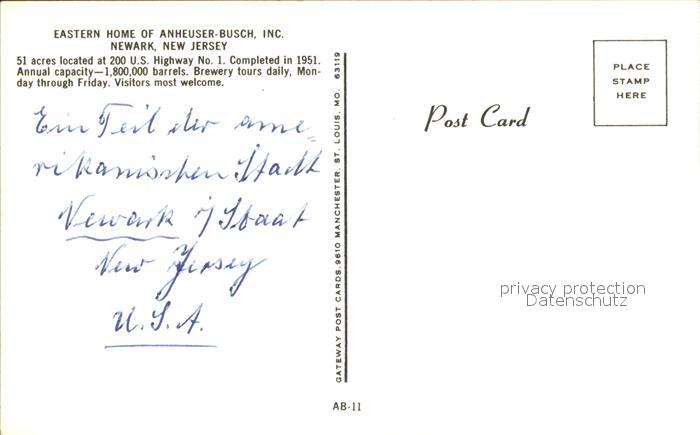 EASTERN HOME OF ANHEUSER-BUSCH, INC.
NEWARK, NEW JERSEY
51 acres located at 200 U.S. Highway No. 1. Completed in 1951.
Annual capacity—1,800,000 barrels. Brewery tours daily, Mon-
day through Friday. Visitors most welcome.
Ein Teil der ame=
rikanischen Stadt
Newark i/ Staat
New Jersey
U.S.A.
GATEWAY POST CARDS, 9610 MANCHESTER, ST. LOUIS, MO. 63119
Post Card
PLACE
STAMP
HERE
privacy protection
Datenschutz
AB-11